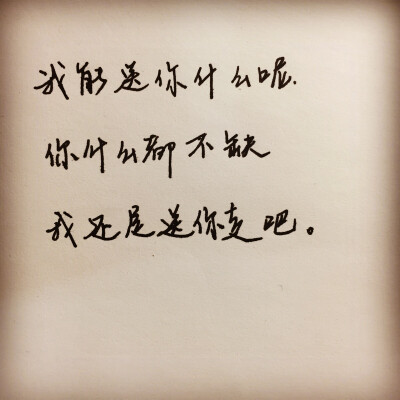 我能送你什么呢.
你什么都不缺
我还是送你走吧。